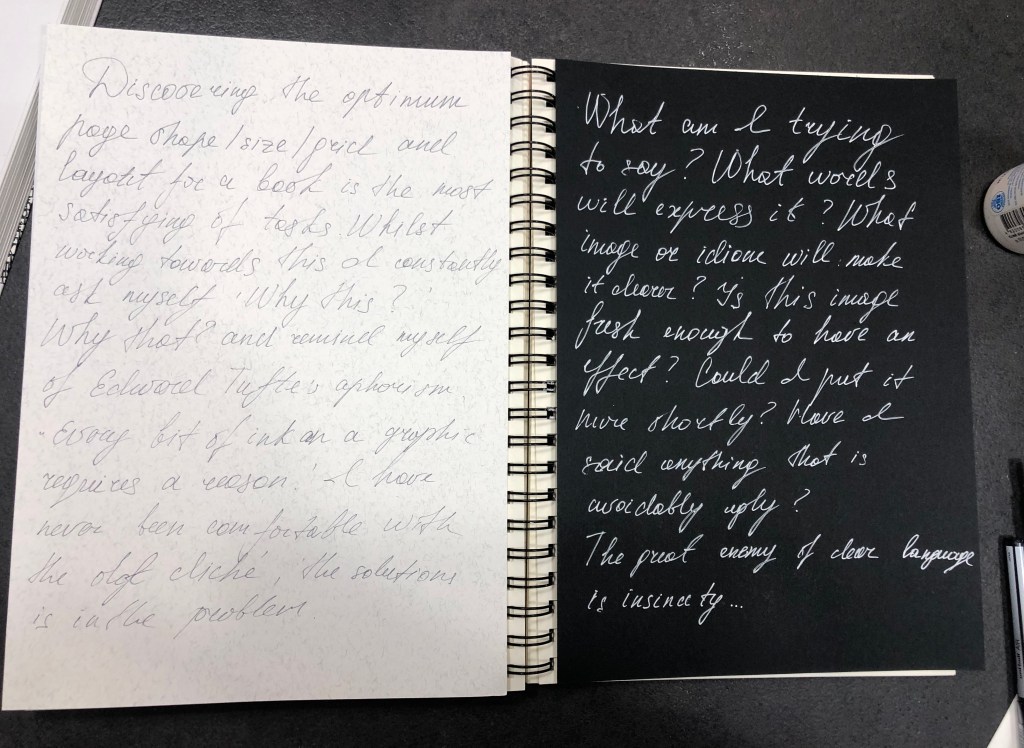 Discovering the optimum
page shape/size/grid and
layout for a book is the most
satisfying of tasks. Whilst
working towards this I constantly
ask myself 'Why this?
Why that?' and remind myself
of Edward Tufte's aphorism
"Every bit of ink on a graphic
requires a reason.' I have
never been comfortable with
the old cliché, 'the solution
is in the problem
What am I trying
to say? What words
will express it? What
image or idiom will make
it clearer? Is this image
fresh enough to have an
effect? Could I put it
more shortly? Have I
said anything that is
avoidably ugly?
The great enemy of clear language
is insincety...